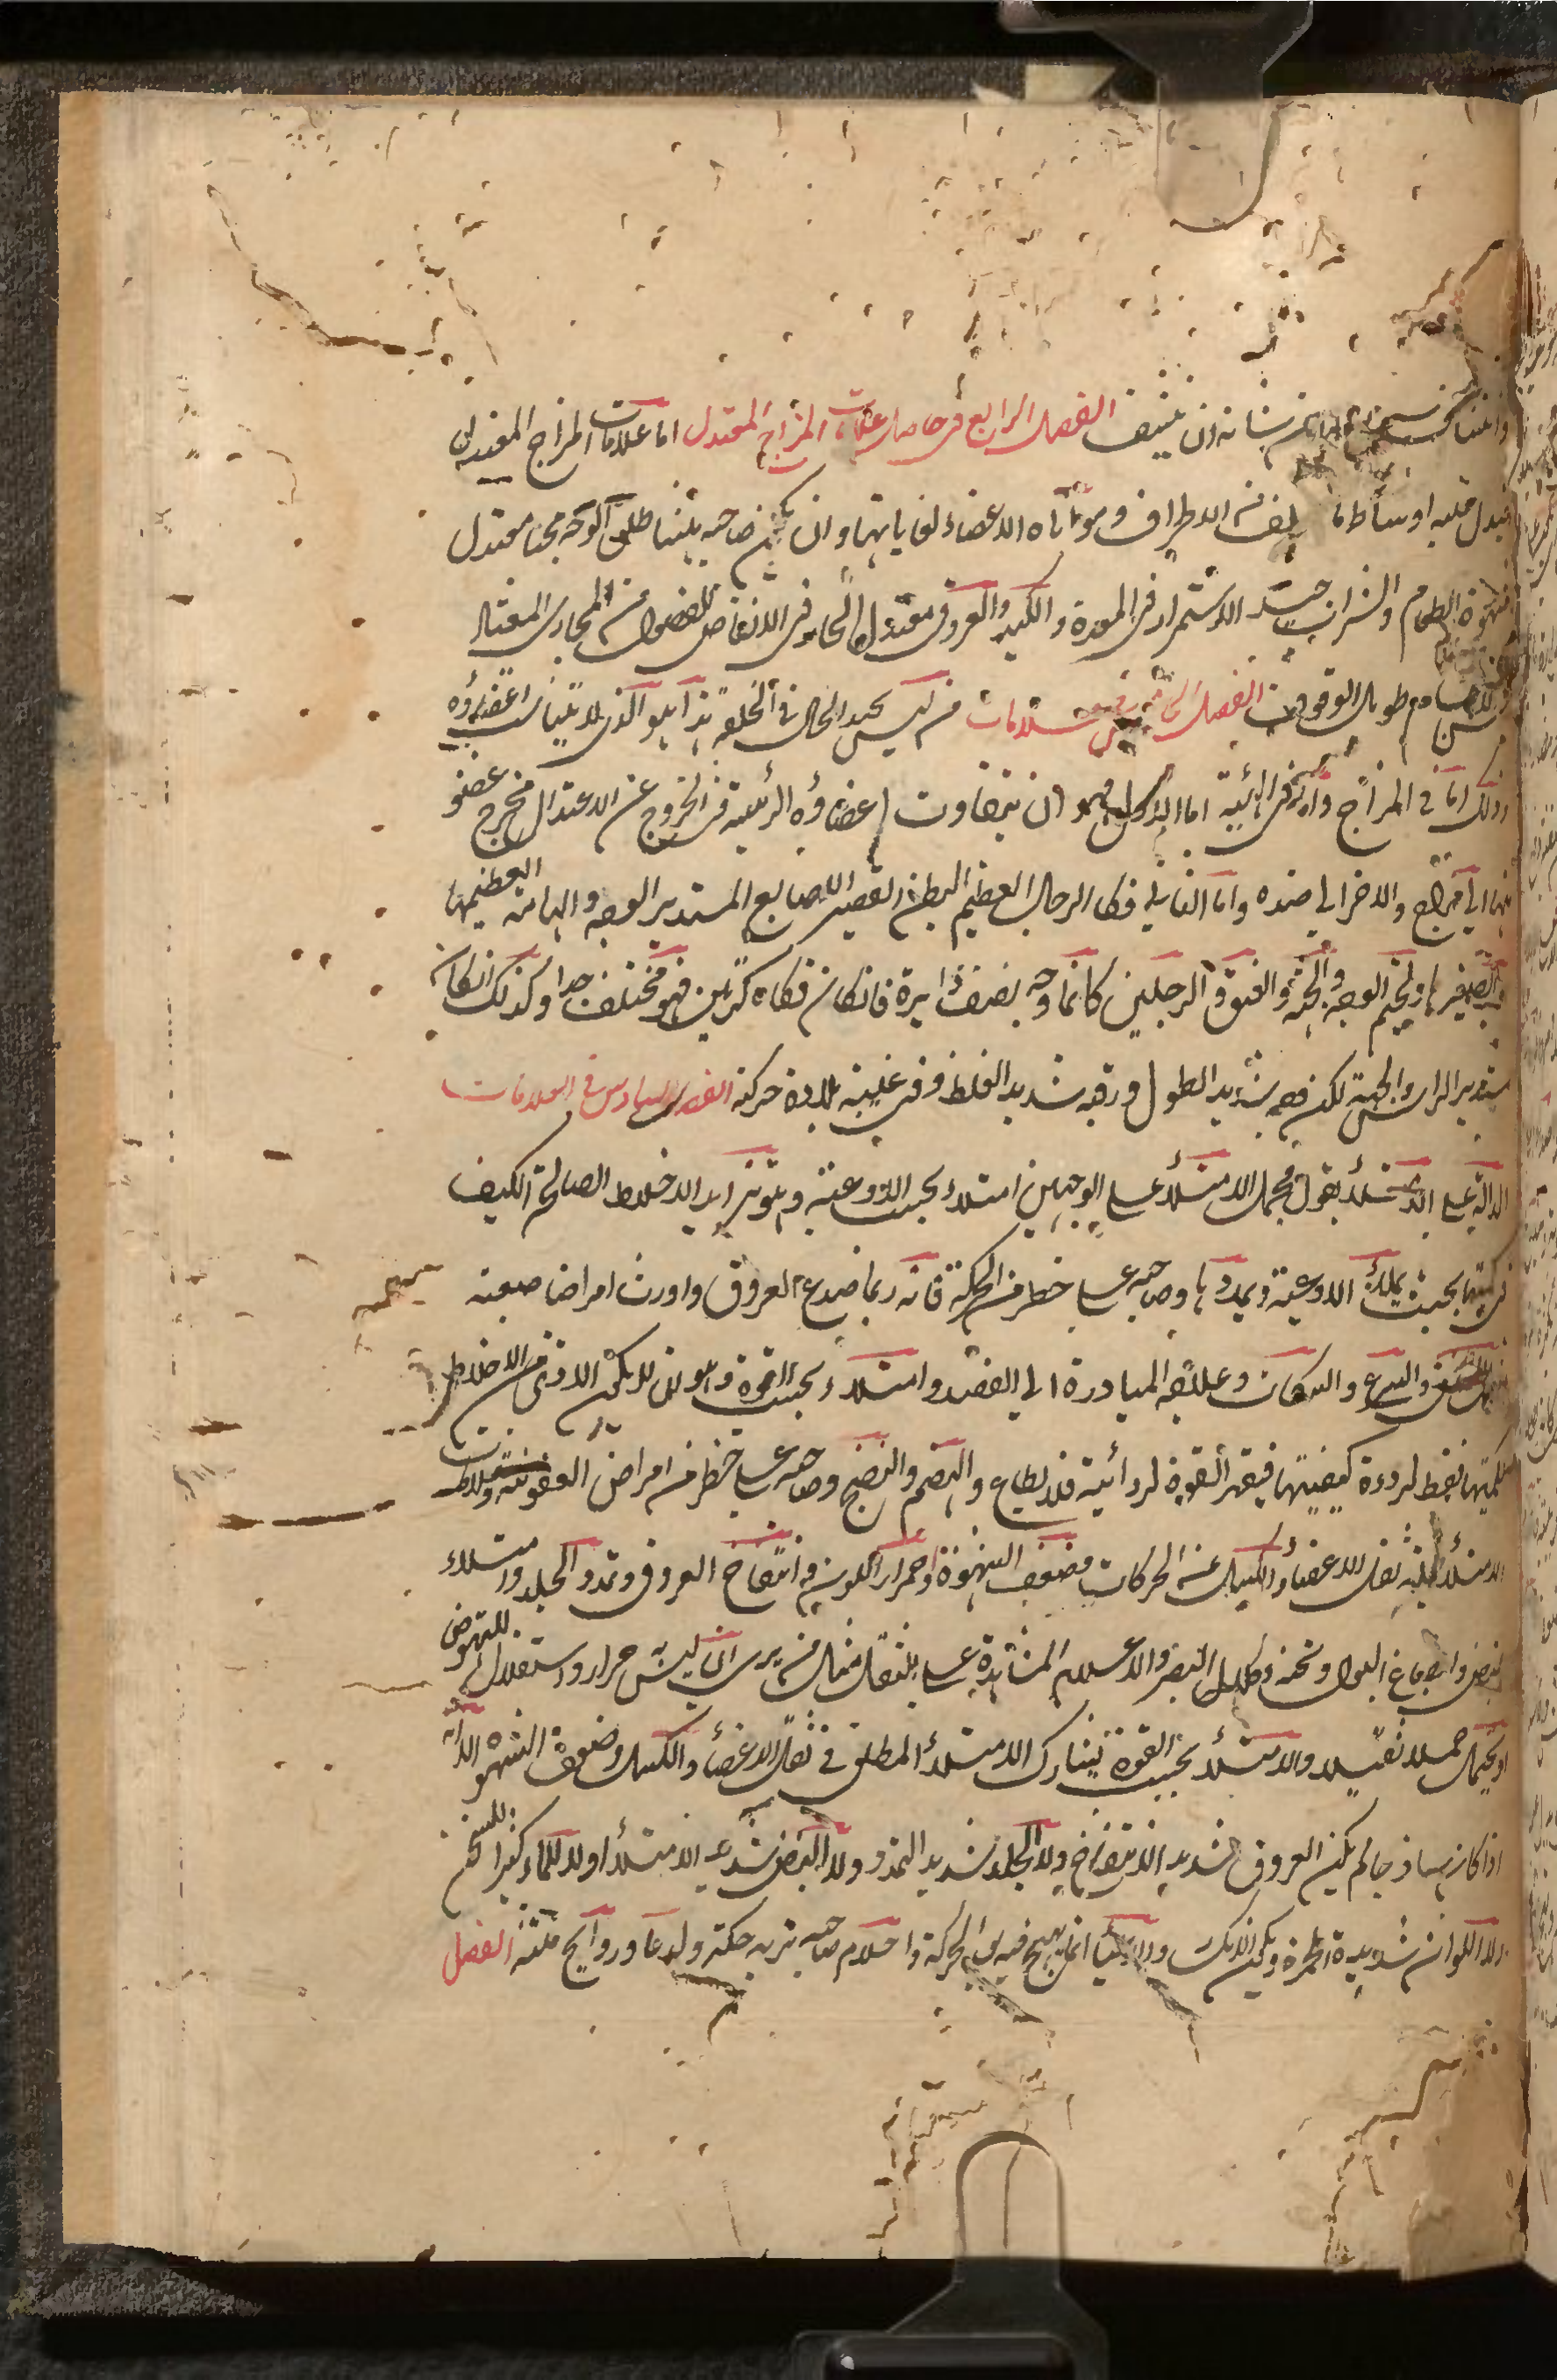 من شانه ان ينشف الفصل الرابع في حاصل علامات المزاج المعتدل اما علامات المزاج المعتدل
الاطراف ومواتاه الاعضاء لغاياتها وان يكون صاحبه بشا طلق الوجه محبا معتدل
شهوة الطعام والشراب جيد الاستمراء في المعدة والكبد والعروق معتدل الحال في الانتفاض للفضول من المجاري المعتاد
طويل الوقوف الفصل الخامس في علامات من ليس بجيد الحال في الخلقة هذا هو الذي لا يتناسب اعضاؤه
وذلك اما في المزاج واما في الهيئة اما الاول فهو ان يتفاوت اعضاؤه الرئيسة في الخروج عن الاعتدال فخرج عضو
منها الى مزاج والاخر الى ضده واما الثاني فكالرجل العظيم البطن القصير الاصابع المستدير الوجه والهامة العظيمها
والصغيرها ولحيم الوجه والجبهة والعنق والرجلين كانما وجه نصف دايرة فان كان فكاه كبيرين فهو مختلف جدا وكذلك ان كان
مستدير الراس والجبهة لكن وجهه شديد الطول ورقبته شديد الغلظ وفي عينيه بلادة حركة الفصل السادس في العلامات
الدالة على الامتلاء نقول مجمل الامتلاء على الوجهين امتلاء بحسب الاوعية وهو تزايد الاخلاط الصالحة الكيف
في كميتها بحيث يملأ الاوعية ويمددها وصاحبه على خطر من الحركة فانه ربما صدع العروق واورث امراضا صعبة
والصرع والسكات وعلاجه المبادرة الى الفصد وامتلاء بحسب القوة وهو ان لا يكون الاذى من الاخلاط
لكميتها فقط لرداءة كيفيتها فيقهر القوة لردائته فلا يطاوع والهضم والنضج وصاحبه على خطر من امراض العفونة وعلامات
الامتلاء جملته ثقل الاعضاء والكسل عن الحركات وضعف الشهوة واحمرار اللون وانتفاخ العروق وتمدد الجلد وامتلاء
النبض وانصباغ البول وثخنه وكلال البصر والاحلام المشاهدة على بالثقل مثال من يرى ان ليس به حرارا واستقلال للنهوض
او يحمل حملا ثقيلا والامتلاء بحسب القوة يشارك الامتلاء المطلق في ثقل الاعضاء والكسل وضعف الشهوة الا انه
اذا كان ساذجا لم يكن العروق شديد الانتفاخ ولا الجلد شديد التمدد ولا النبض شديد الامتلاء ولا الماء كثير الثخن
ولا اللون شديدة الحمرة ويكون الانكسار والاعياء انما يهيج فيه بعد الحركة واحلام صاحبه تريه حكة ولدعا وروايح منتنة الفصل